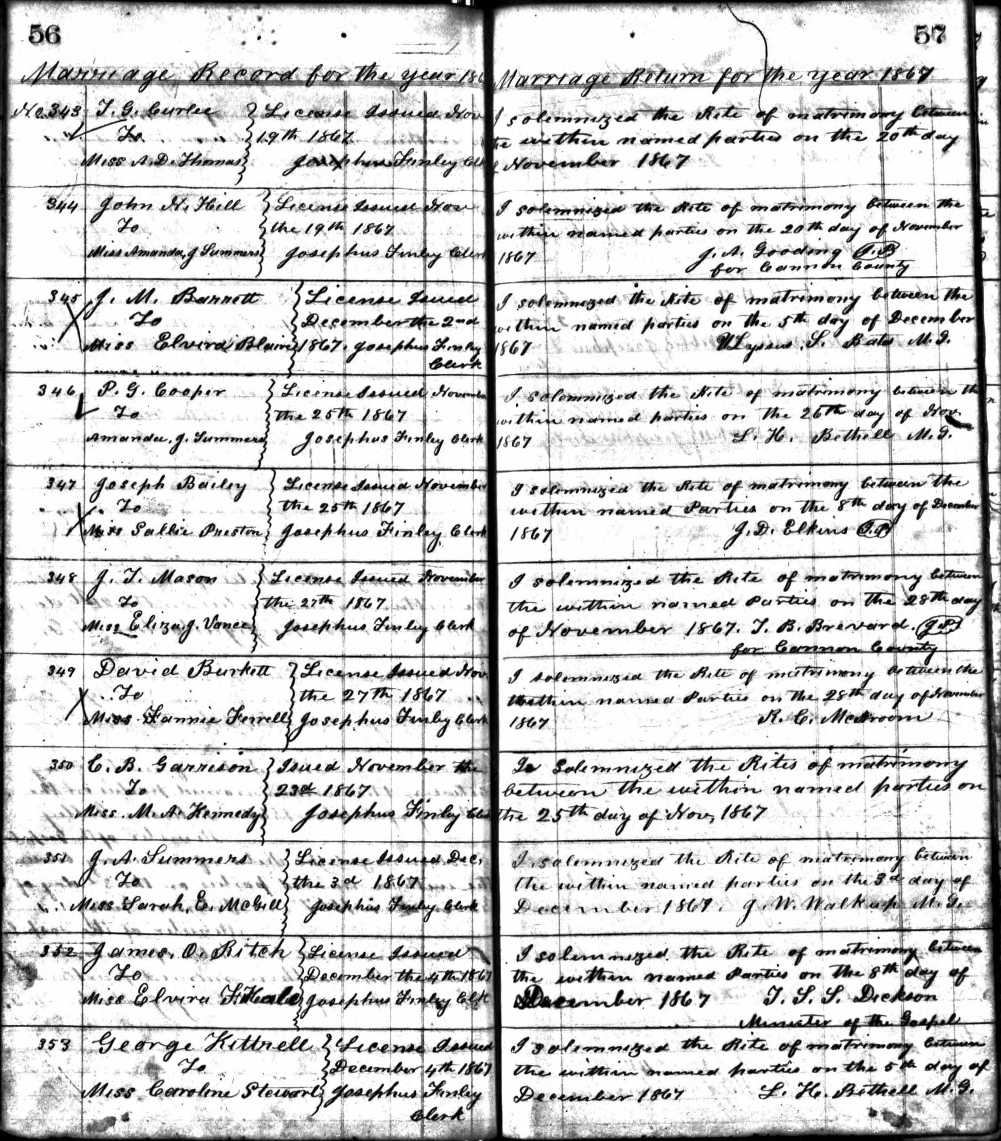 56
Marriage Record for the year 186
No. 343 T. G. Curlee License Issued Nov
To 19th 1867
Miss A. D. Thomas Josephus Finley Clk
344 John H. Hill License Issued Nov
To the 19th 1867
Miss Amanda J Summers Josephus Finley Clerk
345 J. M. Barrett License Issued
To December the 2nd
Miss Elvira Blair 1867. Josephus Finley
Clerk
346 P. G. Cooper License Issued November
To the 25th 1867
Amanda J. Summers Josephus Finley Clerk
347 Joseph Bailey License Issued November
To the 25th 1867
Miss Sallie Preston Josephus Finley Clerk
348 J. T. Mason License Issued November
To the 27th 1867
Miss Eliza J. Vance Josephus Finley Clerk
349 David Burkett License Issued Nov
To the 27th 1867
Miss Fannie Ferrell Josephus Finley Clerk
350 C. B. Garrison Issued November the
To 23rd 1867
Miss M. A. Kennedy Josephus Finley Clk
351 J. A. Summers License Issued Dec.
To the 3d 1867
Miss Sarah E. McGill Josephus Finley Clerk
352 James O. Ritch License Issued
To December the 4th 1867
Miss Elvira F. Hale Josephus Finley Clk
353 George Kittrell License Issued
To December 4th 1867
Miss Caroline Stewart Josephus Finley
Clerk
57
Marriage Return for the year 1867
I solemnized the Rite of matrimony between
the within named parties on the 20th day
of November 1867
I solemnized the Rite of matrimony between the
within named parties on the 20th day of November
1867 J. A. Gooding J.P.
for Cannon County
I solemnized the Rite of matrimony between the
within named parties on the 5th day of December
1867 Ulyssus. S. Bates M.G.
I solemnized the Rite of matrimony between the
within named parties on the 26th day of Nov.
1867 L. H. Bethell M.G.
I solemnized the Rite of matrimony between the
within named Parties on the 8th day of December
1867 J. D. Elkins J.P.
I solemnized the Rite of matrimony between
the within named Parties on the 28th day
of November 1867. T. B. Brevard. J.P.
for Cannon County
I solemnized the Rite of matrimony between the
within named Parties on the 28th day of November
1867 R. C. McBroom
Solemnized the Rites of matrimony
between the within named parties on
the 25th day of Nov, 1867
I solemnized the Rite of matrimony between
the within named parties on the 3d day of
December 1867. J. W. Walkup M.G.
I solemnized the Rite of matrimony between
the within named Parties on the 8th day of
December 1867 T. S. S. Dickson
Minister of the Gospel
I solemnized the Rite of matrimony between
the within named parties on the 5th day of
December 1867 L. H. Bethell M.G.